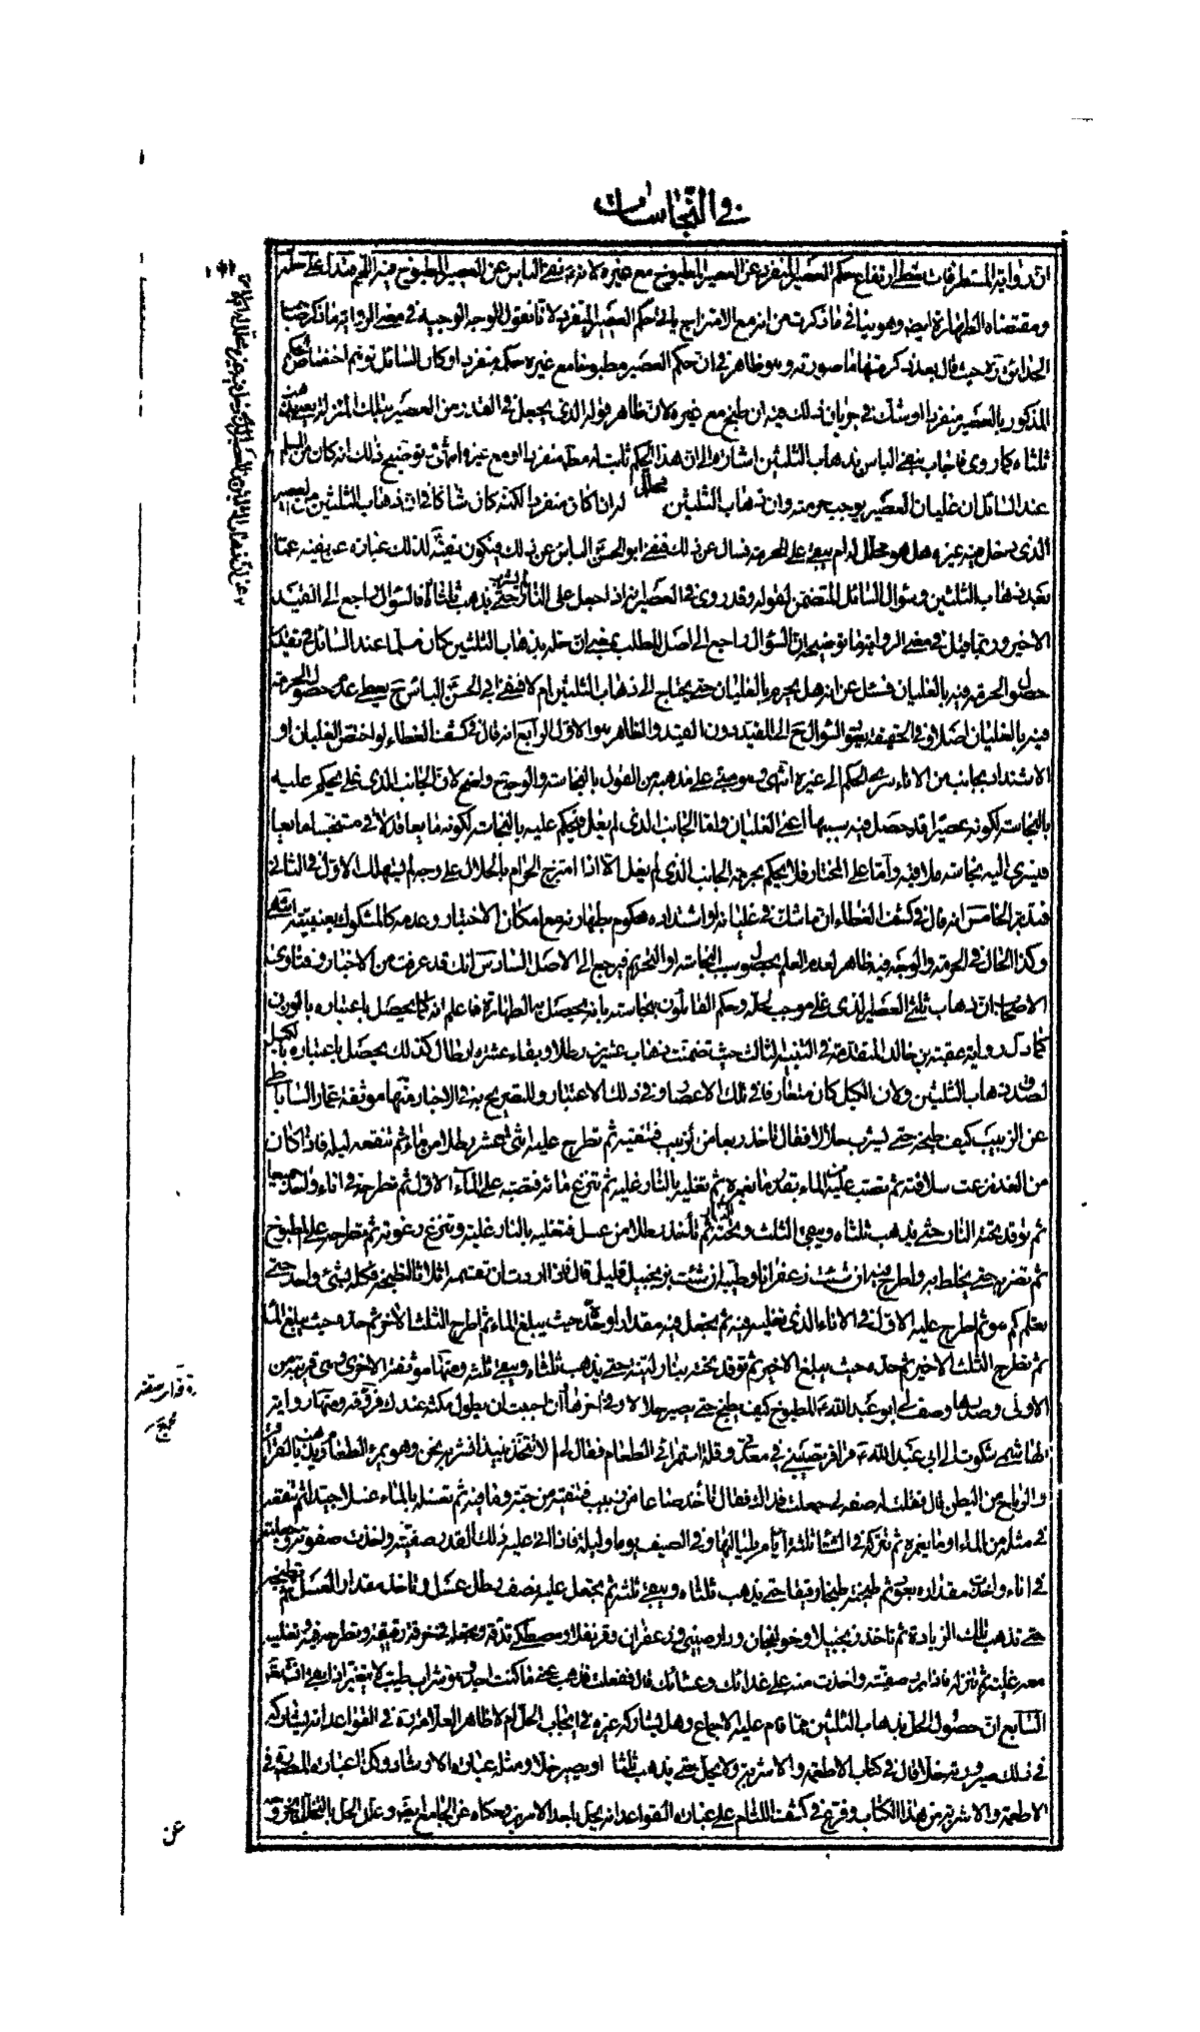 في النجاسات
ان رواية المستطرفات تعطي ارتفاع حكم العصير المنفرد عن العصير المطبوخ مع غيره لانه نفى الباس عن العصير المطبوخ فيه اللحم فتدل على حله
ومقتضاه الطهارة ايضا وهو ينافي ما ذكرت من انه مع الامتزاج باق حكم العصير المنفرد لانا نقول الوجه الوجيه في معنى الرواية ما ذكره صاحب
الحدائق ره حيث قال بعد ذكره لها ما صورته وهو ظاهر في ان حكم العصير مطبوخا مع غيره حكمه منفردا وكان السائل توهم اختصاص الحكم
المذكور بالعصير منفردا او شك في جريان ذلك فيه ان طبخ مع غيره لان ظاهر قوله الذي يجعل في القدر من العصير بتلك المنزلة يعني هذه
ثلثاه كما روى فاجاب بنفي الباس بذهاب الثلثين اشارة الى ان هذا الحكم ثابت له مطلقا منفردا او مع غيره انتهى توضيح ذلك انه كان من المسلم
عند السائل ان غليان العصير يوجب حرمته وان ذهاب الثلثين محلل له اذا كان منفردا لكنه كان شاكا في ان ذهاب الثلثين من العصير
الذي دخل فيه غيره هل هو محلل له ام يبقى على الحرمة فسال عن ذلك فنفى ابو الحسن الباس عن ذلك فيكون نفيه لذلك عبارة عن نفيه عما
بعد ذهاب الثلثين وسؤال السائل المتضمن لقوله وقد روى في العصير انه اذا جعل على النار لم يشرب حتى يذهب ثلثاه فالسؤال راجع الى القيد
الاخير وربما قيل في معنى الرواية ما توضيحه ان السؤال راجع الى اصل المطلب بمعنى ان حله بذهاب الثلثين كان مسلما عند السائل في تفكر
حصول الحرمة فيه بالغليان فسئل عن انه هل يحرم بالغليان حتى يحتاج الى ذهاب الثلثين ام لا فنفى ابي الحسن الباس ح يعطي عدم حصول الحرمة
فيه بالغليان اصلا وفي الحقيقة يتوجه السؤال ح الى المقيد دون القيد والظاهر هو الاول الرابع انه قال في كشف الغطاء لو اختص الغليان او
الاشتداد بجانب من الاناء سرى الحكم الى غيره انتهى وهو مبني على مذهبه من القول بالنجاسة والوجه ح واضح لان الجانب الذي غلى يحكم عليه
بالنجاسة لكونه عصيرا قد حصل فيه سببها اعني الغليان واما الجانب الذي لم يغل فيحكم عليه بالنجاسة لكونه مايعا قد لاقى متنجسا مايعا
فيسرى اليه نجاسة ملاقيه واما على المختار فلا يحكم بحرمة الجانب الذي لم يغل الا اذا امتزج الحرام بالحلال على وجه لم يستهلك الاول في الثاني
فتدبر الخامس انه قال في كشف الغطاء ان ما شك في غليانه او اشتداده محكوم بطهارته مع امكان الاختبار وعدمه كالمشكوك بعنبيته انتهى
وكذا الحال في الحرمة والوجه فيه ظاهر لعدم العلم بحصول سبب النجاسة او التحريم فيرجع الى الاصل السادس انك قد عرفت من الاخبار وفتاوى
الاصحاب ان ذهاب ثلثي العصير الذي غلى موجب لحله وحكم القائلون بنجاسته بانه يحصل به الطهارة فاعلم انه كما يحصل باعتباره بالوزن
كما دل رواية عقبة بن خالد المتقدمة في التنبيه الثالث حيث تضمنت ذهاب عشرين رطلا وبقاء عشرة ارطال كذلك يحصل باعتباره بالكيل
لصدق ذهاب الثلثين ولان الكيل كان متعارفا في تلك الاعصار وفي ذلك الاعتبار وللتصريح به في الاخبار منها موثقة عمار الساباطي
عن الزبيب كيف طبخه حتى يشرب حلالا فقال تاخذ ربعا من زبيب فتنقيه ثم تطرح عليه اثنى عشر رطلا من ماء ثم تنقعه ليلة فاذا كان
من الغد نزعت سلافته ثم تصب عليه من الماء بقدر ما يغمره ثم تغليه بالنار غلية ثم تنزع ماءه فتصبه على الماء الاول ثم تطرحه في اناء واحد جميعا
ثم توقد تحته النار حتى يذهب ثلثاه ويبقى الثلث وتحته النار ثم تاخذ رطلا من عسل فتغليه بالنار غلية وتنزع رغوته ثم تطرحه على المطبوخ
ثم تضربه حتى يختلط به واطرح فيه ان شئت زعفرانا وطيبه ان شئت بزنجبيل قليل قال فاذا اردت ان تقسمه اثلاثا لتطبخه فكله بشئ واحد حتى
تعلم كم هو ثم اطرح عليه الاول في الاناء الذي تغليه فيه ثم تجعل فيه مقدارا وحده حيث يبلغ الماء ثم اطرح الثلث الاخر ثم حده حيث يبلغ الماء
ثم تطرح الثلث الاخير ثم حده حيث يبلغ الاخير ثم توقد تحته بنار لينة حتى يذهب ثلثاه ويبقى ثلثه ومنها موثقته الاخرى وهي قريبة من
الاولى وصدرها وصف لي ابو عبد الله ع المطبوخ كيف يطبخ حتى يصير حلالا وفي اخرها ان احببت ان يطول مكثه عندك فروقه ومنها رواية
الهاشمي شكوت الى ابي عبد الله ع قراقر تصيبني في معدتي وقلة استمرائي الطعام فقال لي لم لا تتخذ نبيذا نشربه نحن وهو يمرئ الطعام ويذهب بالقراقر
والرياح من البطن قال فقلت له صفه لي جعلت فداك فقال تاخذ صاعا من زبيب فتنقيه من حبه وما فيه ثم تغسله بالماء غسلا جيدا ثم تنقعه
في مثله من الماء او ما يغمره ثم تتركه في الشتاء ثلثة ايام بلياليها وفي الصيف يوما وليلة فاذا اتى عليه ذلك القدر صفيته واخذت صفوته وجعلته
في اناء واخذت مقداره بعود ثم طبخته طبخا رقيقا حتى يذهب ثلثاه ويبقى ثلثه ثم تجعل عليه نصف رطل عسل وتاخذ مقدار العسل ثم تطبخه
حتى تذهب تلك الزيادة ثم تاخذ زنجبيلا وخولنجان ودارصيني وزعفران وقرنفلا ومصطكي تدقه وتجعله في خرقة رقيقة وتطرحه فيه وتغليه
معه غلية ثم تنزله فاذا برد صفيته واخذت منه على غدائك وعشائك قال ففعلت فذهب عني ما كنت اجده وهو شراب طيب لا يتغير اذا بقي انشاء الله
السابع ان حصول الحل بذهاب الثلثين مما قام عليه الاجماع وهل يشاركه غيره في ايجاب الحل ام لا ظاهر العلامة ره في القواعد انه يشاركه
في ذلك صيرورته خلا قال في كتاب الاطعمة والاشربة ولا يحل حتى يذهب ثلثاه او يصير خلا ومثله عبارة الارشاد وكذا عبارة المصنف ره في
الاطعمة والاشربة من هذا الكتاب وفرع في كشف اللثام على عبارة القواعد انه يحل باحد الامرين وحكاه عن الجامع ايضا وعلل الحل بالتخلل بخروجه
قرار سقته
عن